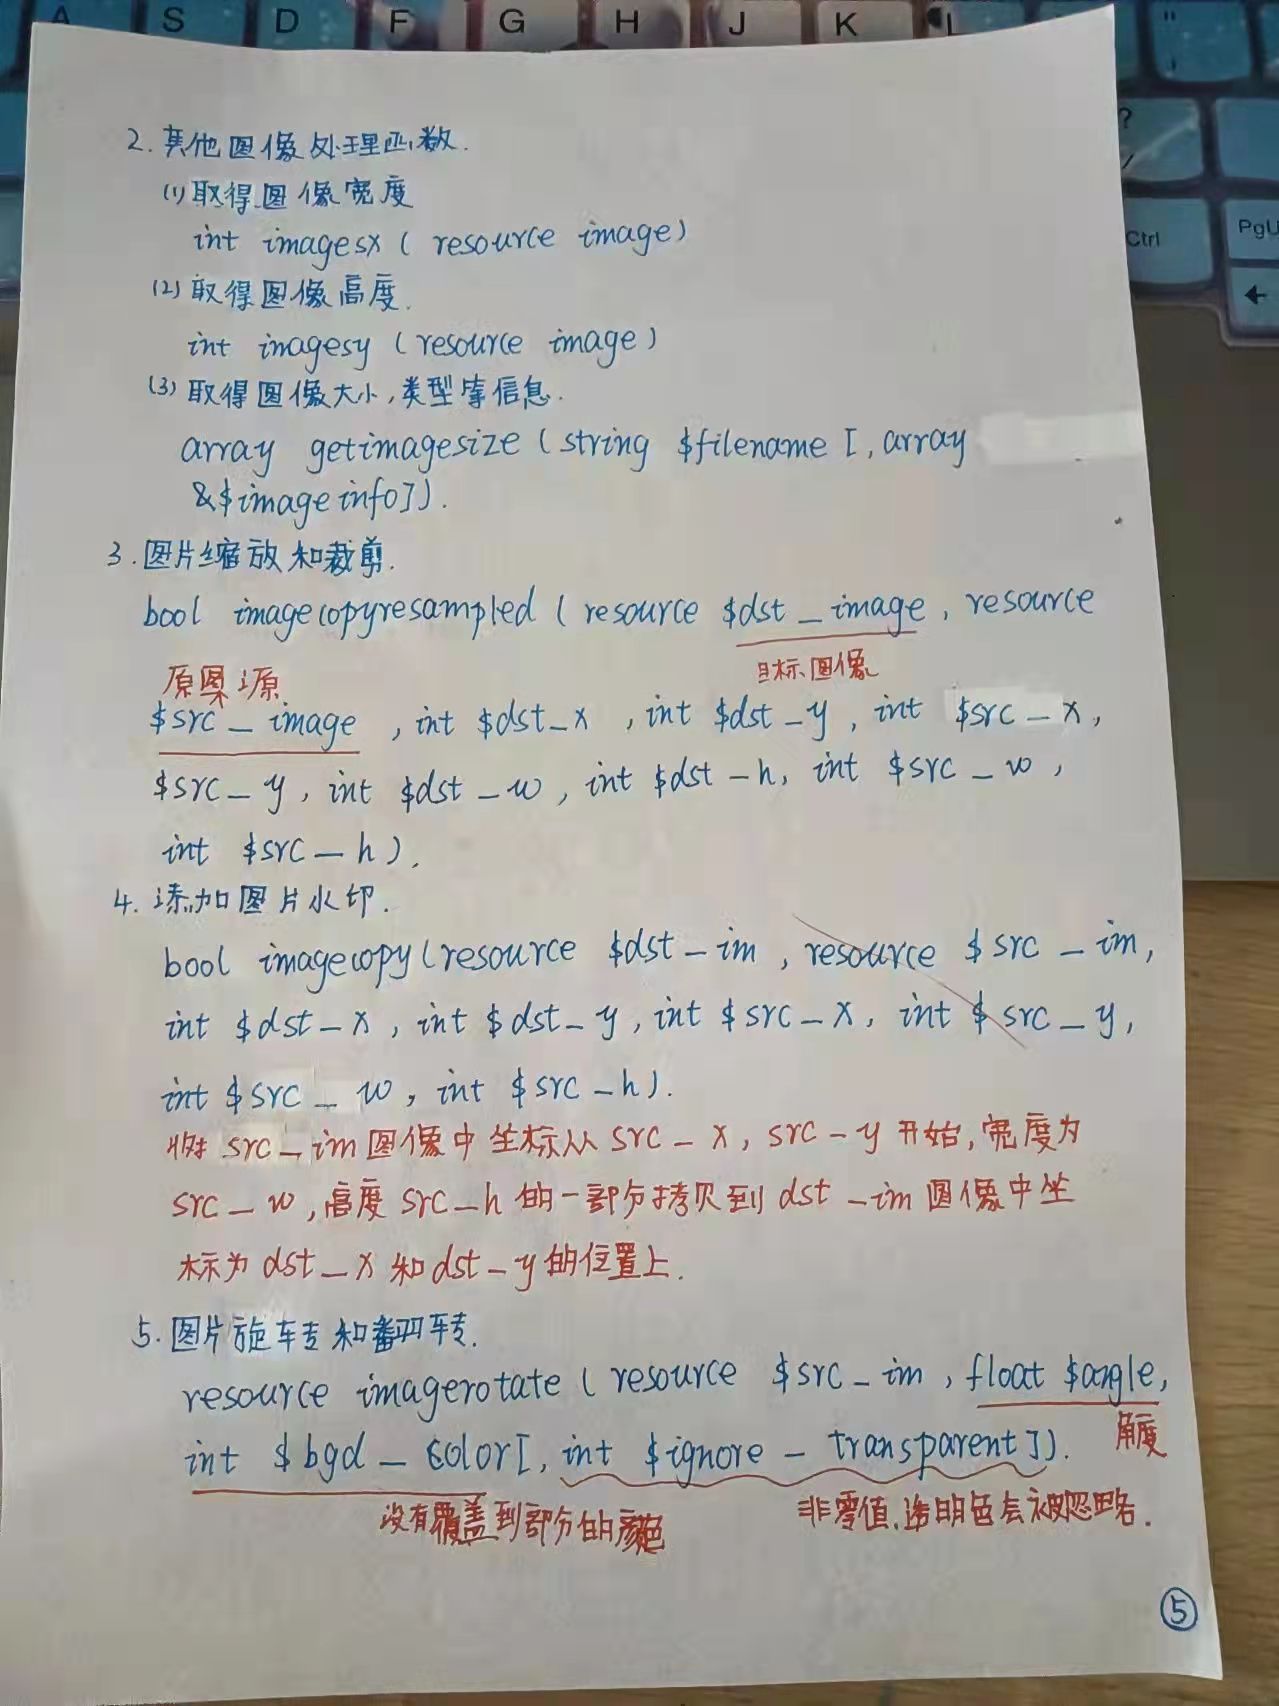 A S D F G H J K L "
? /
Ctrl PgU
←
2.其他图像处理函数.
(1)取得图像宽度
int imagesx ( resource image)
(2)取得图像高度.
int imagesy ( resource image )
(3)取得图像大小,类型等信息.
array getimagesize ( string $filename [, array
&$imageinfo]).
3.图片缩放和裁剪.
bool imagecopyresampled ( resource $dst_image, resource
原图源 目标图像
$src_image , int $dst_x , int $dst_y, int $src_x,
$src_y, int $dst_w, int $dst_h, int $src_w,
int $src_h).
4.添加图片水印.
bool imagecopy(resource $dst_im, resource $src_im,
int $dst_x, int $dst_y, int $src_x, int $src_y,
int $src_w, int $src_h).
将 src_im图像中坐标从 src_x, src_y 开始,宽度为
src_w,高度 src_h 的一部分拷贝到 dst_im 图像中坐
标为 dst_x 和 dst_y 的位置上.
5.图片旋转和翻转.
resource imagerotate ( resource $src_im, float $angle,
int $bgd_color[, int $ignore_transparent]). 角度
没有覆盖到部分的颜色 非零值,透明色会被忽略.
⑤